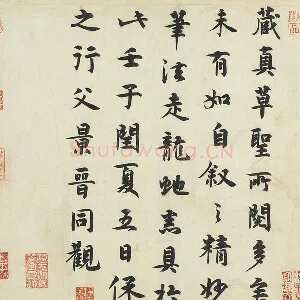 藏真草聖所閱多
未有如自叙之精妙
筆法走龍蛇意具於
此壬子閏夏五日保
之行父景晉同觀
Shufawang.CN